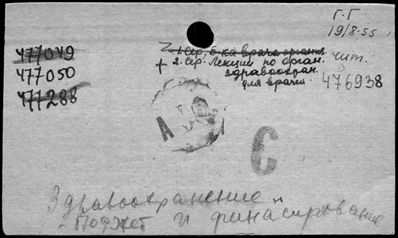 Г.Г
19/8.55
477049
477050
477288
1. Сер. б-ка врача органи
+ 2. Сер. Лекции по орган.
здравоохран.
для врачей.
чит.
476938
А
С
Здравоохранение
- Бюджет и финансирование